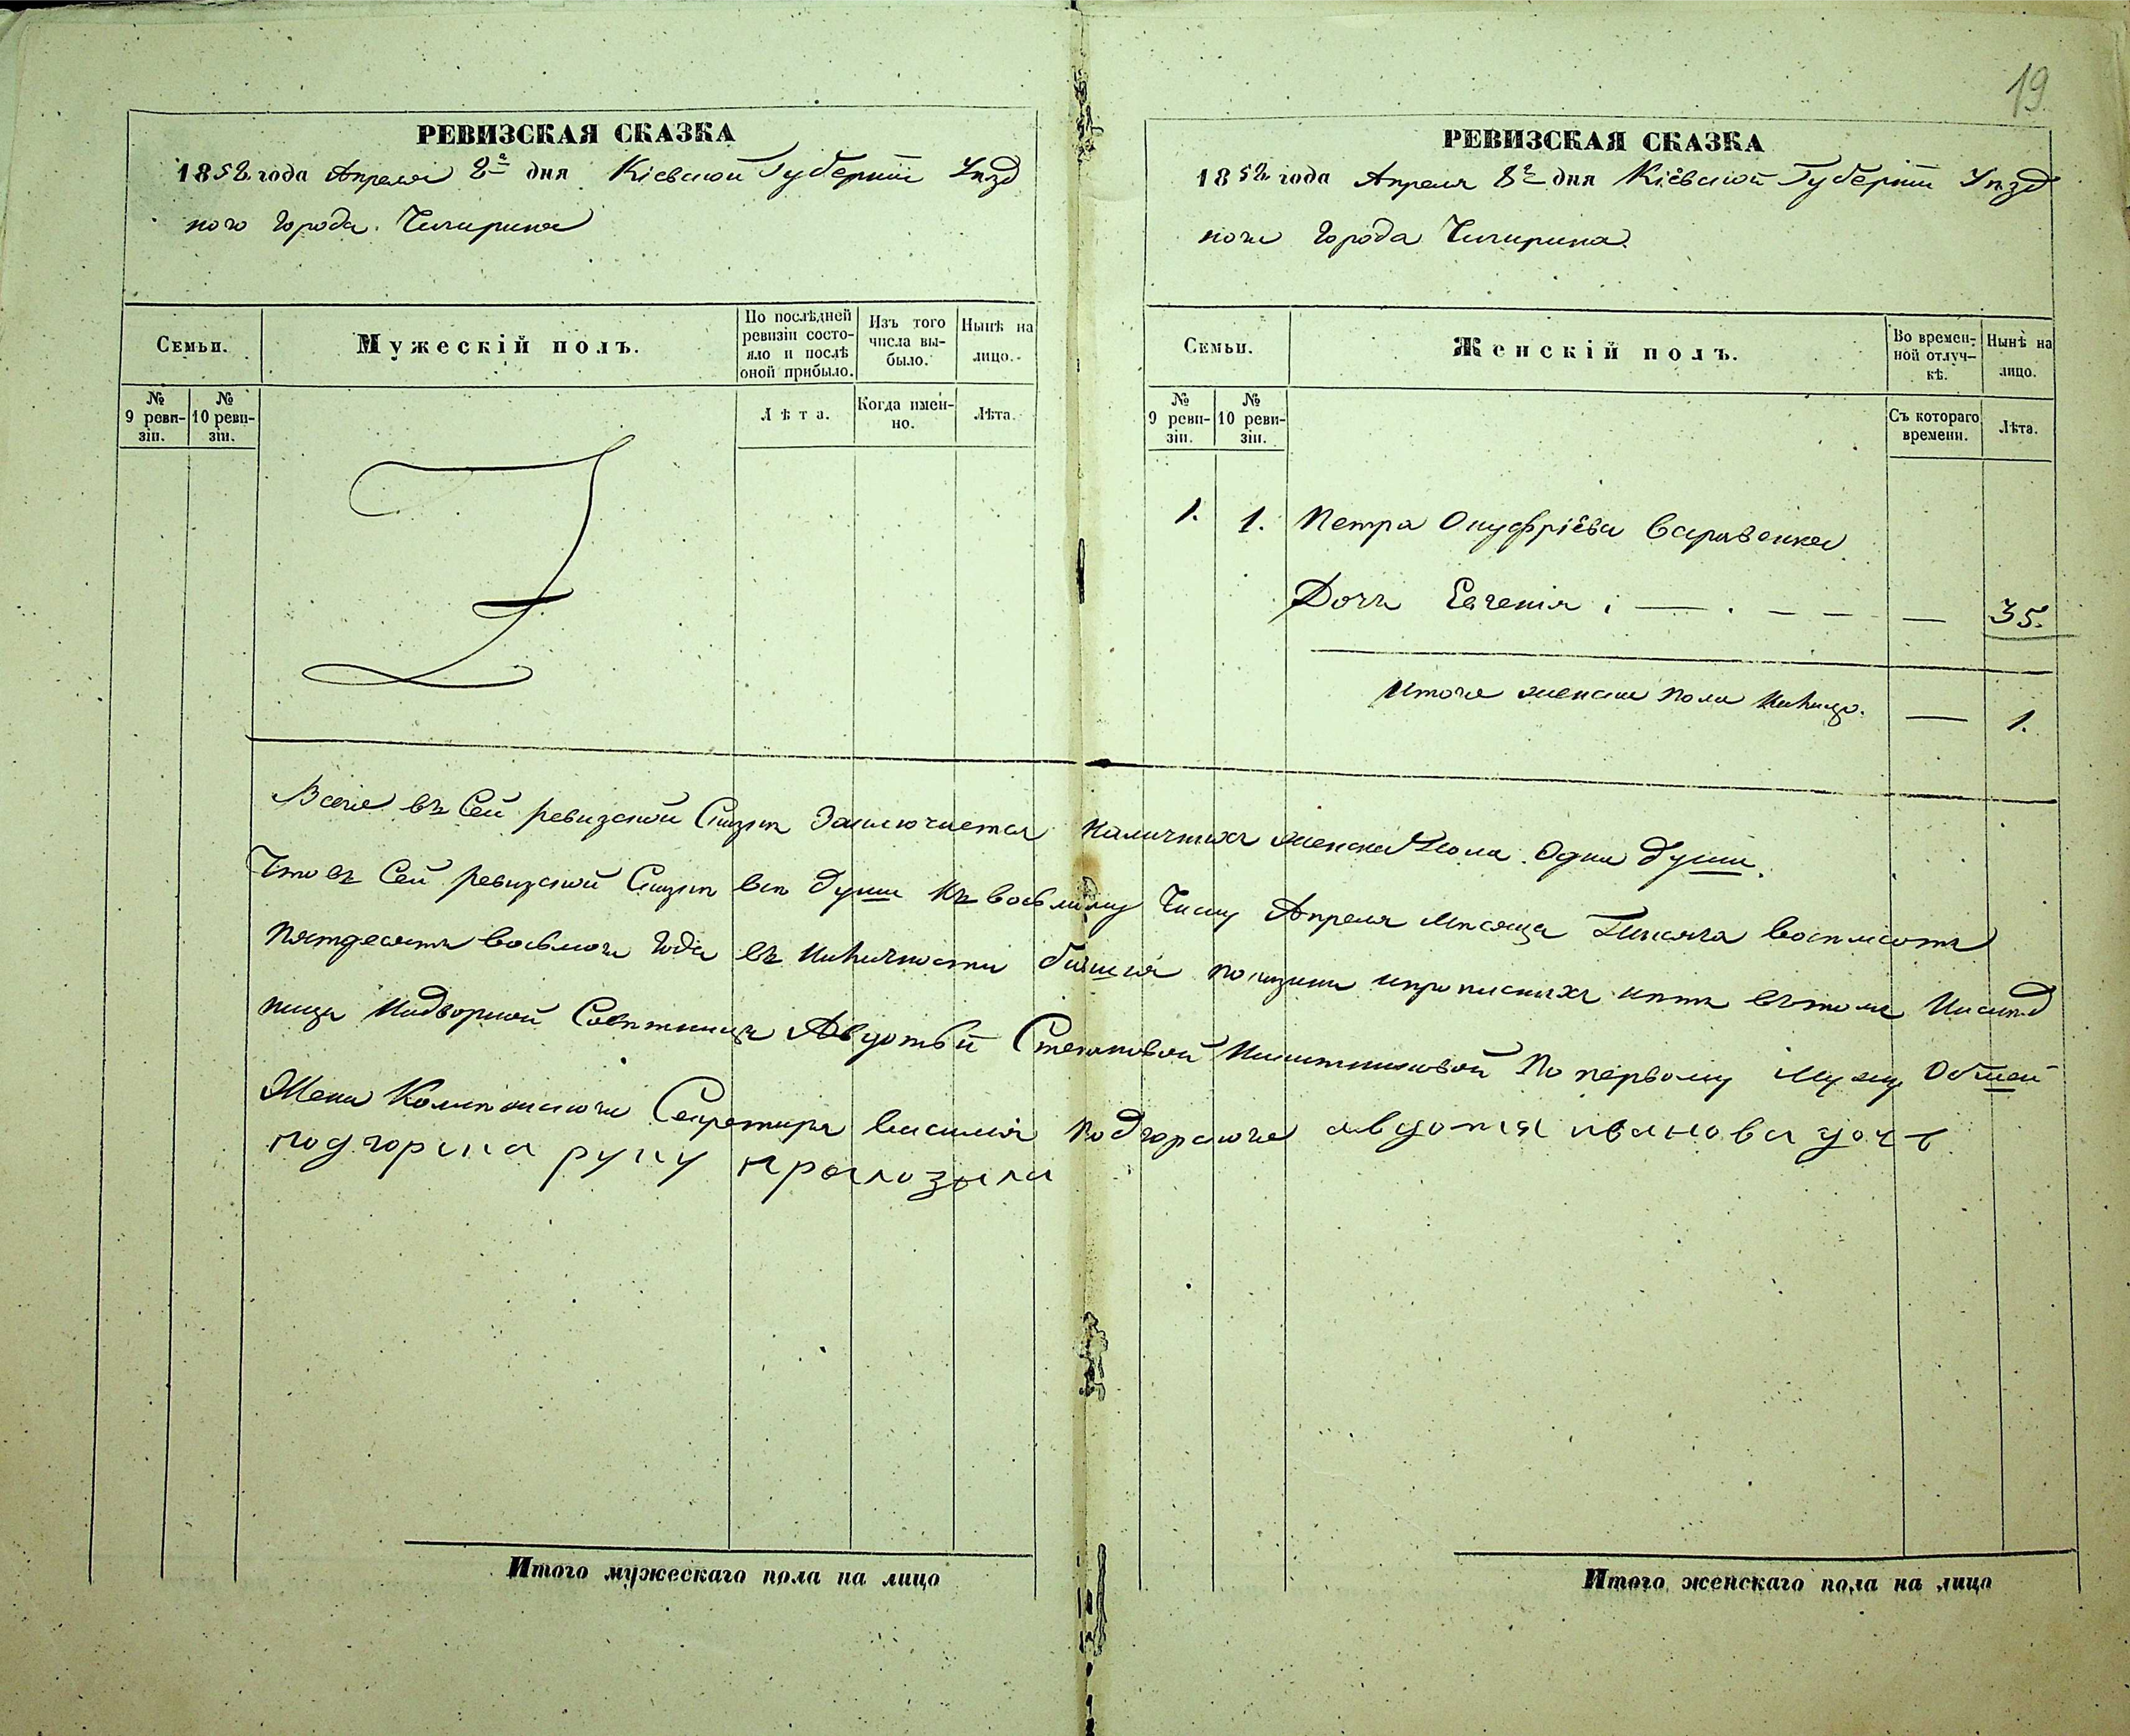 19
РЕВИЗСКАЯ СКАЗКА
1858 года Апреля 8го дня Кіевской Губерніи Уѣзд
ного Города Чигирина
Семьи.
Мужескій полъ.
По послѣдней ревизіи состояло и послѣ оной прибыло.
Изъ того числа выбыло.
Нынѣ на лицо.
№ 9 ревизіи.
№ 10 ревизіи.
Лѣта.
Когда именно.
Лѣта.
РЕВИЗСКАЯ СКАЗКА
1858 года Апреля 8го дня Кіевской Губерніи Уѣзд
ного Города Чигирина
Семьи.
Женскій полъ.
Во временной отлучкѣ.
Нынѣ на лицо.
№ 9 ревизіи.
№ 10 ревизіи.
Съ котораго времени.
Лѣта.
1. 1. Петра Онуфріева Саравенка
Дочь Евгенія — — — — 35.
Итого женска пола налицо. — 1.
Всего въ Сей ревизской Сказкѣ Заключается наличныхъ женска Пола Одна душа.
Что въ Сей ревизской Сказкѣ всѣ души къ восьмому Числу Апреля Мѣсяца Тысяча восѣмсотъ
пятдесятъ восьмого Года въ Наличности показаны и прописныхъ нѣтъ въ томъ
Надворной Совѣтницы Авдотьи Степановой По первому Мужу
Жена Колежского Секретаря Василія Подгорского авдотя иванова дочь
подгорска руку приложила
Итого мужескаго пола на лицо
Итого женскаго пола на лицо